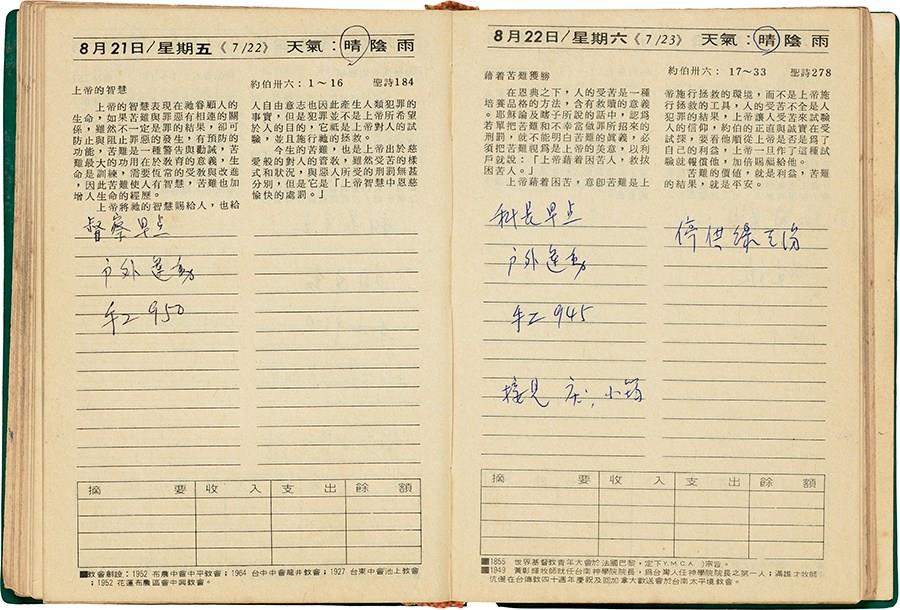 8月21日/星期五《7/22》 天氣：晴 陰 雨
約伯卅六：1～16 聖詩184
上帝的智慧
上帝的智慧表現在祂眷顧人的
生命，如果苦難與惡有相連的關
係，雖然不一定是罪惡的結果，卻可
防止與阻止罪惡的發生，有預防的
功能，苦難是一種警告與勸誡，苦
難最大的功用在於教育的意義，生
命是訓練，需要恆常的受教與改進
，因此苦難使人有智慧，苦難也加
增人生命的經歷。
上帝將祂的智慧賜給人，也給
人自由意志，也因此產生人類犯罪的
事實，但是犯罪並不是上帝所希望
於人的，目的它祇是上帝對人的試
驗，並且施行祂的拯救。
今生的苦難，也是上帝出於慈
愛的對人的管教，雖然受苦的樣
式和狀況，與惡人所受的刑罰無甚
分別，但是它是「上帝智慧中慈恩
愉快的處罰。」
督察早点
戶外運動
手工950
摘 要 收 入 支 出 餘 額
■教會創設：1952 布農中會中平教會；1964 台中中會龍井教會；1927 台東中會池上教會
；1952 花蓮布農區會中興教會。
8月22日/星期六《7/23》 天氣：晴 陰 雨
約伯卅六：17～33 聖詩278
藉着苦難獲勝
在恩典之下，人的受苦是一種
培養品格的方法，含有救贖的意義
。耶穌論及瞎子所說的話中，認爲
若單把苦難和不幸當做罪所招來的
刑罰，就不能明白苦難的眞義，必
須把苦難視爲是上帝的美意，以利
戶就說：「上帝藉着困苦人，救拔
困苦人。」
上帝藉着困苦，意卽苦難是上
帝施行拯救的環境，而不是上帝施
行拯救的工具，人的受苦不全是人
犯罪的結果，約伯的正直與誠實在
人的信仰，要看他順從上帝是否是爲了
自己的利益，上帝一旦作了這種試
驗就報償他，加倍賜福給他。
苦難的價値，就是利益，苦難
的結果，就是平安。
科長早点
戶外運動
手工945
接見
停供線
摘 要 收 入 支 出 餘 額
■1855 世界基督教靑年大會於法國巴黎，定下Y.M.C.A.)宗旨。
■1949 黃彰輝牧師就任台南神學院院長，爲台灣人任神學院院長之第一人；滿雄才牧師
伉儷在台傳敎四十週年慶祝及回加拿大歡送會於台南太平境教會。